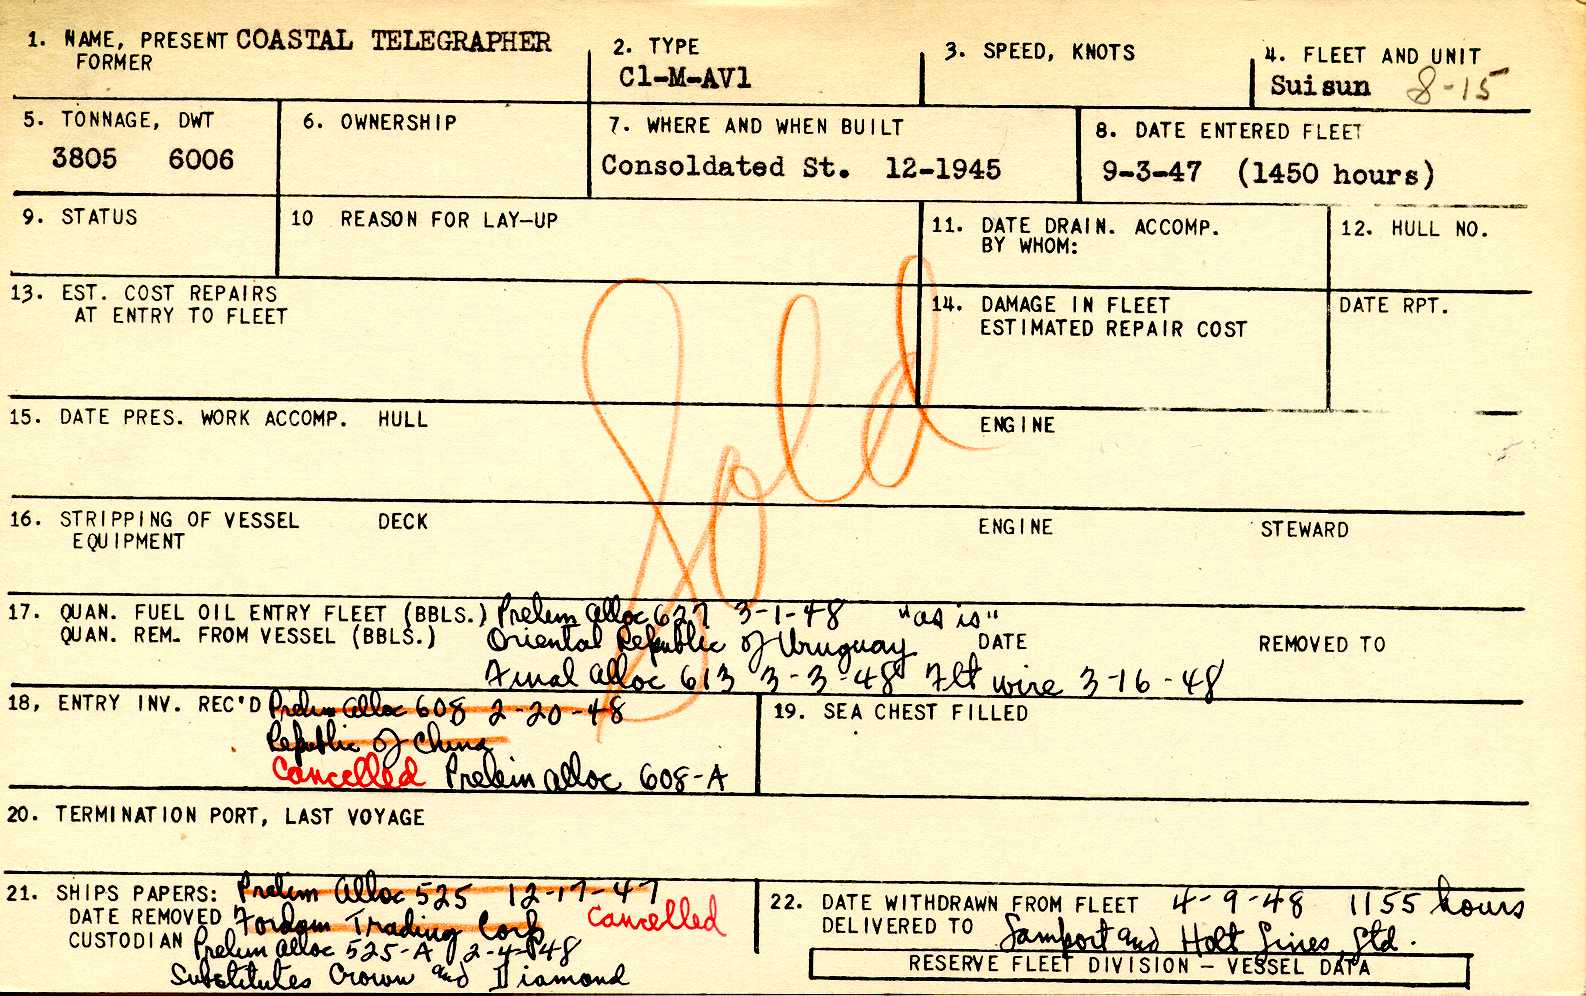 1. NAME, PRESENT COASTAL TELEGRAPHER
FORMER
2. TYPE
C1-M-AV1
3. SPEED, KNOTS
4. FLEET AND UNIT
Suisun 8-15
5. TONNAGE, DWT
3805 6006
6. OWNERSHIP
7. WHERE AND WHEN BUILT
Consoldated St. 12-1945
8. DATE ENTERED FLEET
9-3-47 (1450 hours)
9. STATUS
10 REASON FOR LAY-UP
11. DATE DRAIN. ACCOMP.
BY WHOM:
12. HULL NO.
13. EST. COST REPAIRS
AT ENTRY TO FLEET
14. DAMAGE IN FLEET
ESTIMATED REPAIR COST
DATE RPT.
Sold
15. DATE PRES. WORK ACCOMP. HULL
ENGINE
16. STRIPPING OF VESSEL DECK ENGINE STEWARD
EQUIPMENT
17. QUAN. FUEL OIL ENTRY FLEET (BBLS.) Prelim Alloc 627 3-1-48 "as is"
QUAN. REM. FROM VESSEL (BBLS.) Oriental Republic of Uruguay DATE REMOVED TO
Final Alloc 613 3-3-48 Flt wire 3-16-48
18, ENTRY INV. REC'D Prelim Alloc 608 2-20-48
Republic of China
Cancelled Prelim alloc 608-A
19. SEA CHEST FILLED
20. TERMINATION PORT, LAST VOYAGE
21. SHIPS PAPERS: Prelim Alloc 525 12-17-47
DATE REMOVED Fordom Trading Corp Cancelled
CUSTODIAN Prelim alloc 525-A 2-4-48
Substitutes Crown and Diamond
22. DATE WITHDRAWN FROM FLEET 4-9-48 1155 hours
DELIVERED TO Lamport and Holt Lines, Ltd.
RESERVE FLEET DIVISION - VESSEL DATA